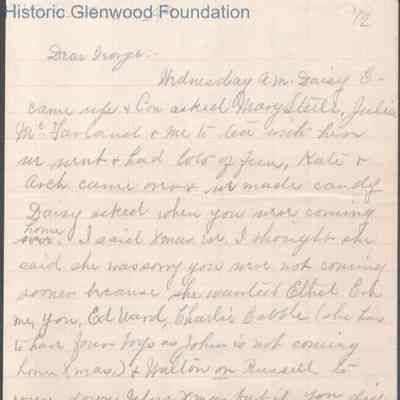 Historic Glenwood Foundation
1/2
Dear George:-
Wednesday a.m. Daisy E-
came up & Con asked Mary Steele, Julia
McFarland & me to tea with her
we went & had lots of fun, Kate &
Arch came over & we made candy
Daisy asked when you were coming
home
over. I said Xmas or I thought she
said she was sorry you were not coming
sooner because she wanted Ethel E
me, you, Ed Ward, Charlie Cabble (she has
to have four boys as John is not coming
home Xmas) & Walton on Russell to
come down before Xmas but if you